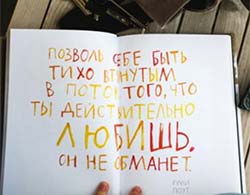 ПОЗВОЛЬ СЕБЕ БЫТЬ
ТИХО ВТЯНУТЫМ
В ПОТОК ТОГО, ЧТО
ТЫ ДЕЙСТВИТЕЛЬНО
ЛЮБИШЬ.
ОН НЕ ОБМАНЕТ.
РУМИ
ПОЭТ